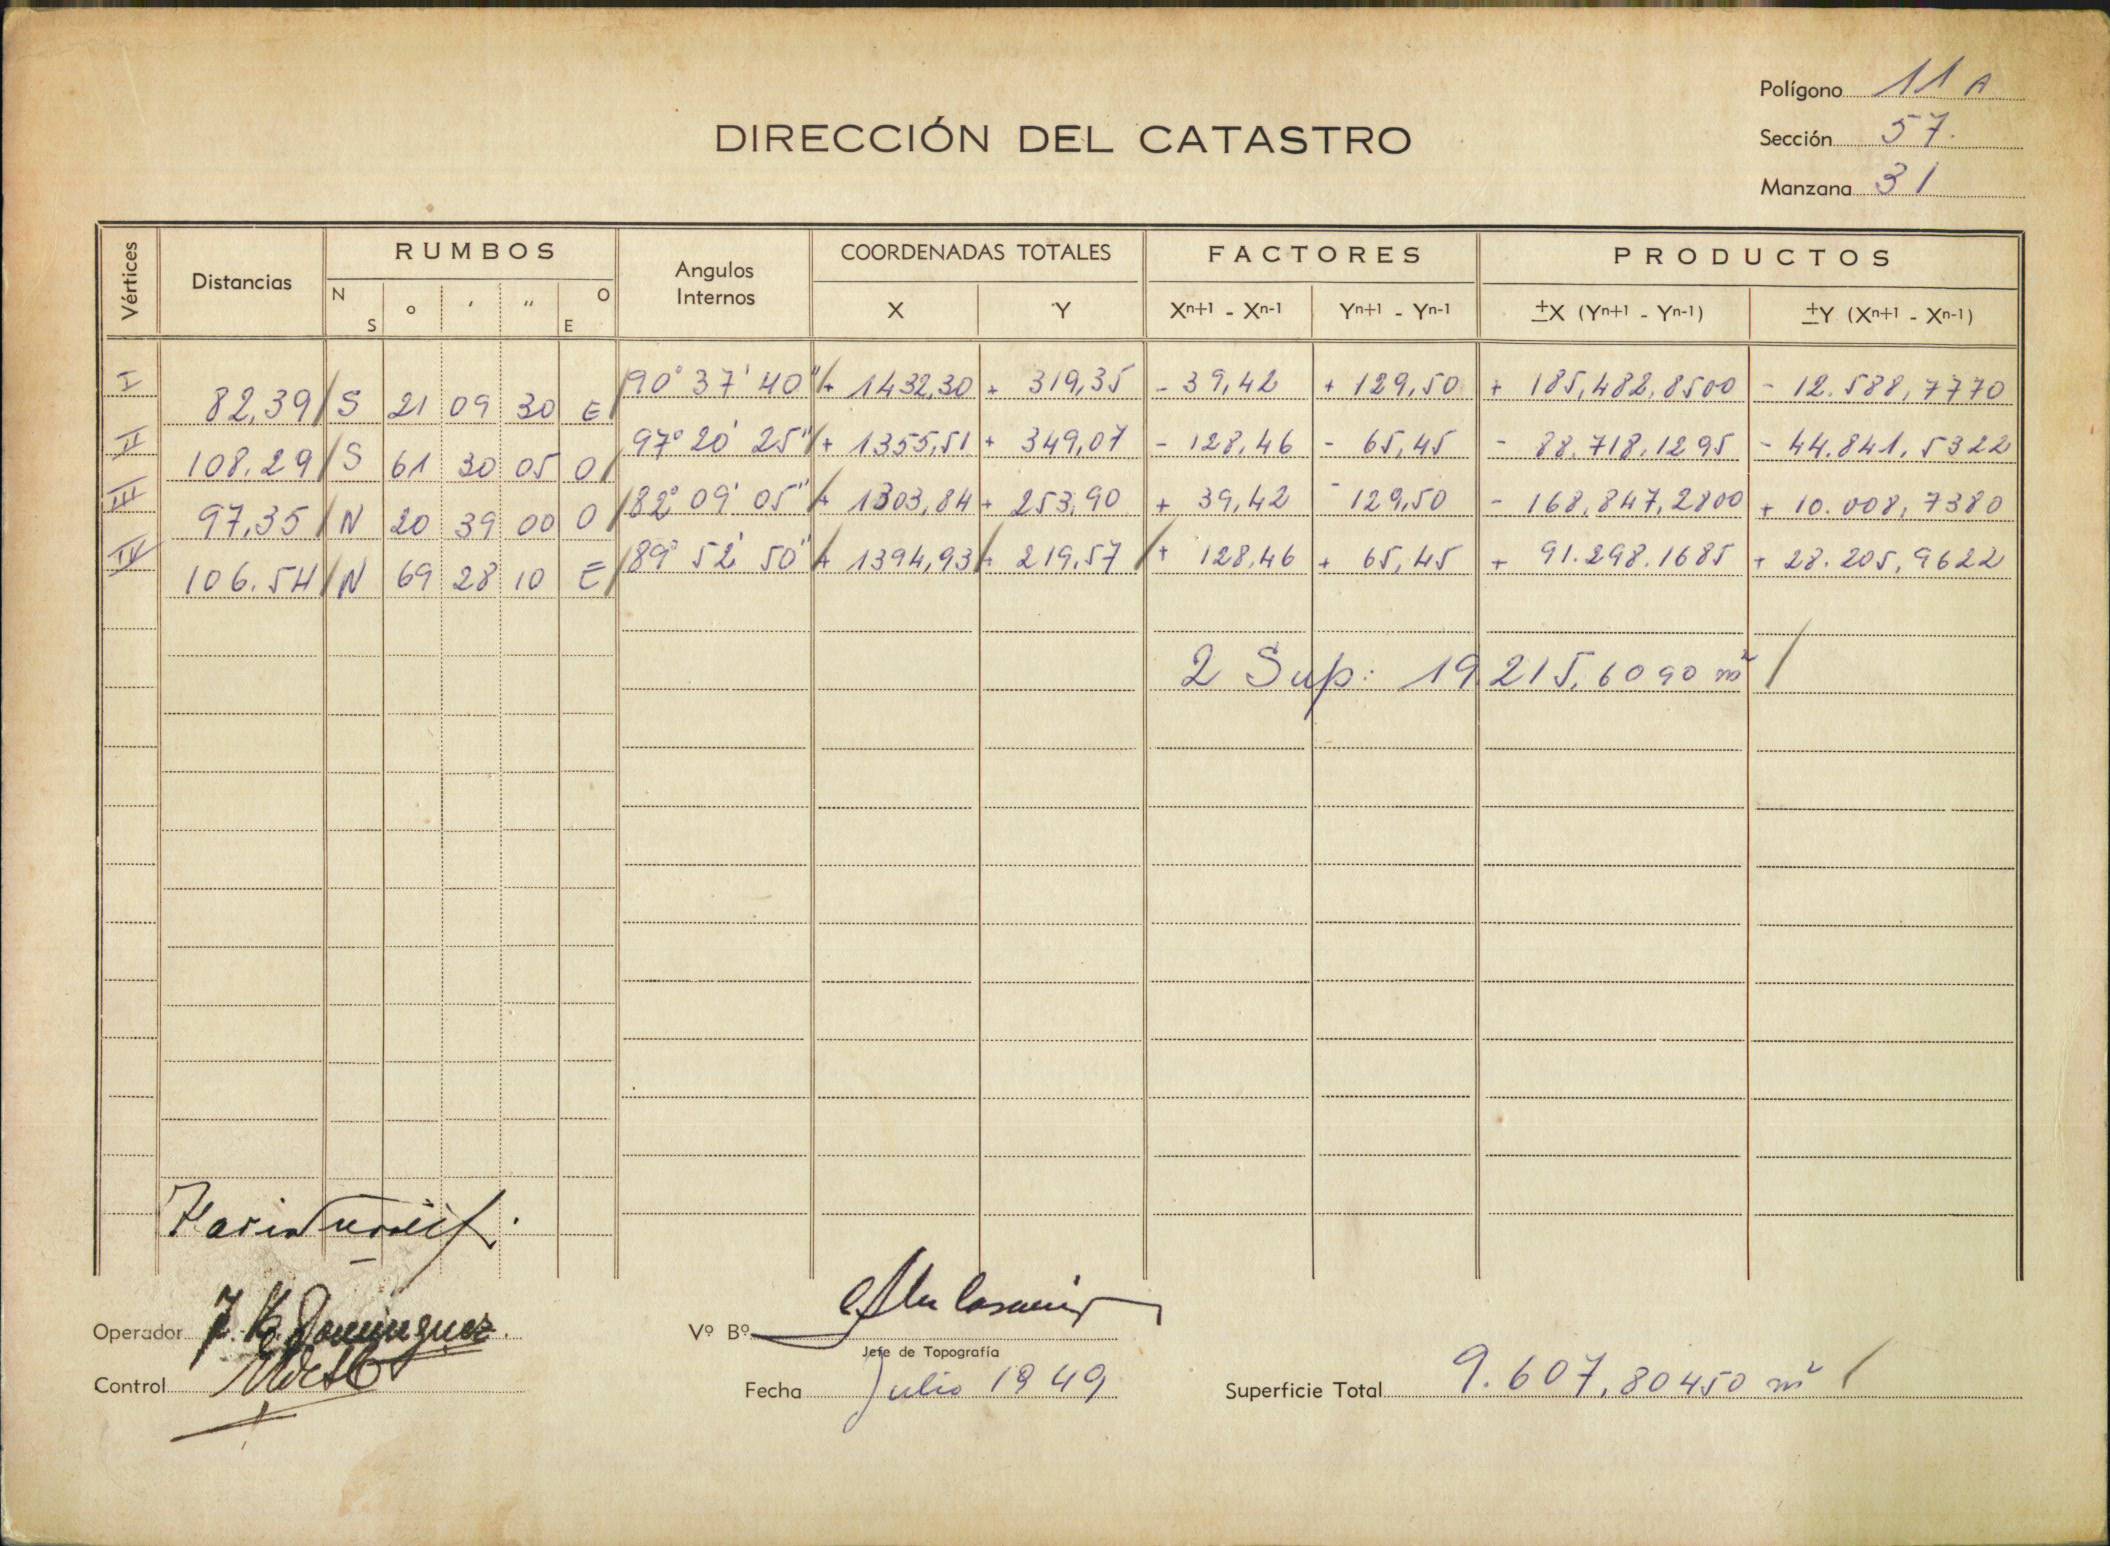 Polígono 11 A
DIRECCIÓN DEL CATASTRO
Sección 57.
Manzana 31
Vértices Distancias RUMBOS Angulos Internos COORDENADAS TOTALES FACTORES PRODUCTOS
N S ° ' " O E X Y Xn+1 - Xn-1 Yn+1 - Yn-1 ±X (Yn+1 - Yn-1) ±Y (Xn+1 - Xn-1)
I 82,39 S 21 09 30 E 90° 37' 40" + 1432,30 + 319,35 - 39,42 + 129,50 + 185,482,8500 - 12.588,7770
II 108.29 S 61 30 05 O 97° 20' 25" + 1355,51 + 349,07 - 128,46 - 65,45 - 88.718.1295 - 44.841,5322
III 97,35 N 20 39 00 O 82° 09' 05" + 1303,84 + 253,90 + 39,42 - 129,50 - 168,847,2800 + 10.008,7380
IV 106.54 N 69 28 10 E 89° 52' 50" + 1394,93 + 219,57 + 128,46 + 65,45 + 91.298.1685 + 28.205,9622
2 Sup: 19.215,6090 m²
Operador Dominguez.
Vº Bº
Jefe de Topografía
Control
Fecha Julio 1949
Superficie Total 9.607,80450 m²